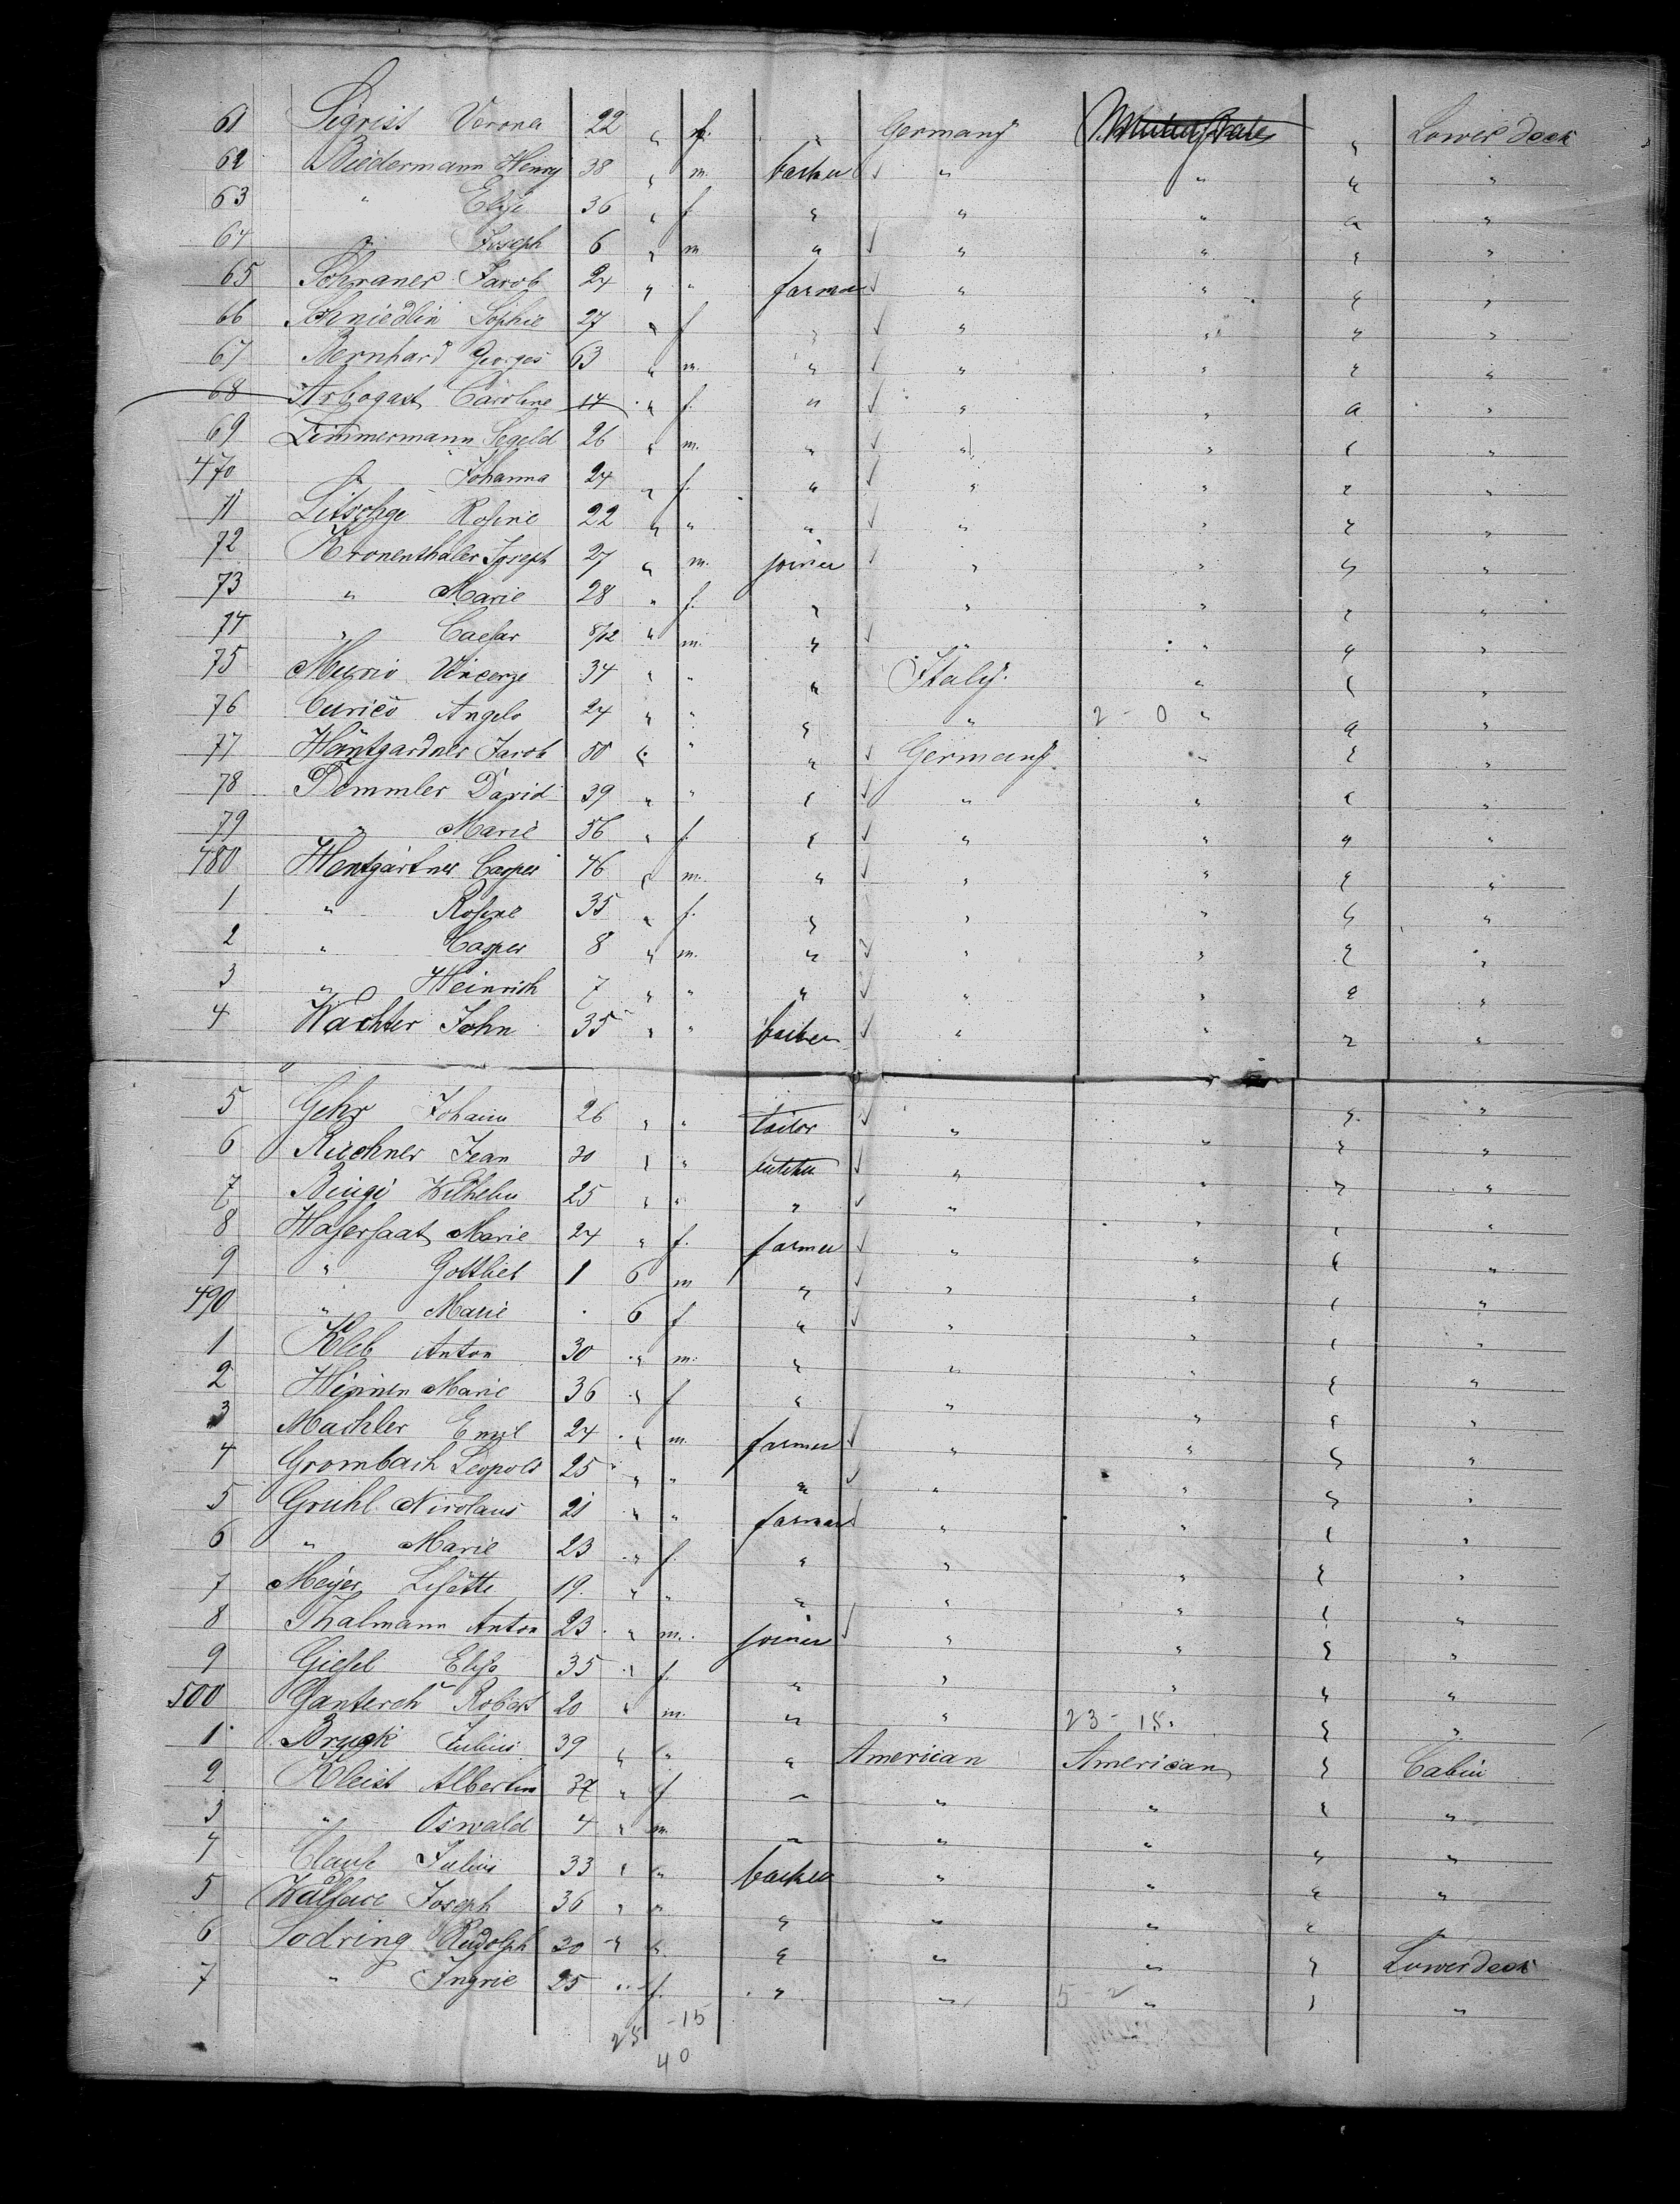 61 Sigrist Verona 22 " f. " Germany United States " Lower deck
62 Biedermann Henry 38 " m. barker " " " "
63 " Elise 36 " f " " " " "
64 " Joseph 6 " m " " " " "
65 Schraner Jacob 24 " " farmer " " " "
66 Schmiedlin Sophie 27 " f " " " " "
67 Bernhard Georges 63 " m. " " " " "
68 Arbogast Caroline 14 " f. " " " " "
69 Zimmermann Segeld 26 " m. " " " " "
470 " Johanna 24 " f. " " " " "
71 Litschge Rosine 22 " " " " " " "
72 Kronenthaler Joseph 27 " m. joiner " " " "
73 " Marie 28 " f. " " " " "
74 " Caesar 8/12 " m. " " " " "
75 Murio Vincenze 34 " " " Italy. " " "
76 Curico Angelo 24 " " " " 2 - 0 " " "
77 Häntgardner Jacob 50 " " " Germany " " "
78 Demmler David 39 " " " " " " "
79 " Marie 56 " f. " " " " "
480 Hentgärtner Casper 46 " m. " " " " "
1 " Rosine 35 " f. " " " " "
2 " Casper 8 " m. " " " " "
3 " Heinrich 7 " " " " " " "
4 Wachter John 35 " " barker " " " "
5 Gehr Johann 26 " " tailor " " " "
6 Kirchner Jean 20 " " butcher " " " "
7 Bingi Wilhelm 25 " " " " " " "
8 Hafersaat Marie 24 " f. farmer " " " "
9 " Gottlieb 1 6 m " " " " "
490 " Marie . 6 f " " " " "
1 Kleb Anton 30 " m. " " " " "
2 Hinnen Marie 36 " f " " " " "
3 Machler Emil 24 " m. farmer " " " "
4 Grombach Leopold 25 " " " " " " "
5 Gruhl Nicolaus 21 " " farmer " " " "
6 " Marie 23 " f. " " " " "
7 Meijer Lisette 19. " " " " " " "
8 Thalmann Anton 23 " m. joiner " " " "
9 Giesel Elisa 35 " f. " " " " "
500 Ganterch Robert 20 " m. " " 23 - 15. " "
1 Bruck Julius 39 " " " American American " Cabin
2 Kleist Albertine 37 " f " " " " "
3 " Oswald 4 " m. " " " " "
4 Clause Julius 33 " " barker " " " "
5 Wallace Joseph 36 " " " " " " "
6 Sodring Rudolph 30 " " " " " " Lower deck
7 " Ingrie 25 " f. " " 5 2 " " "
25 - 15
40